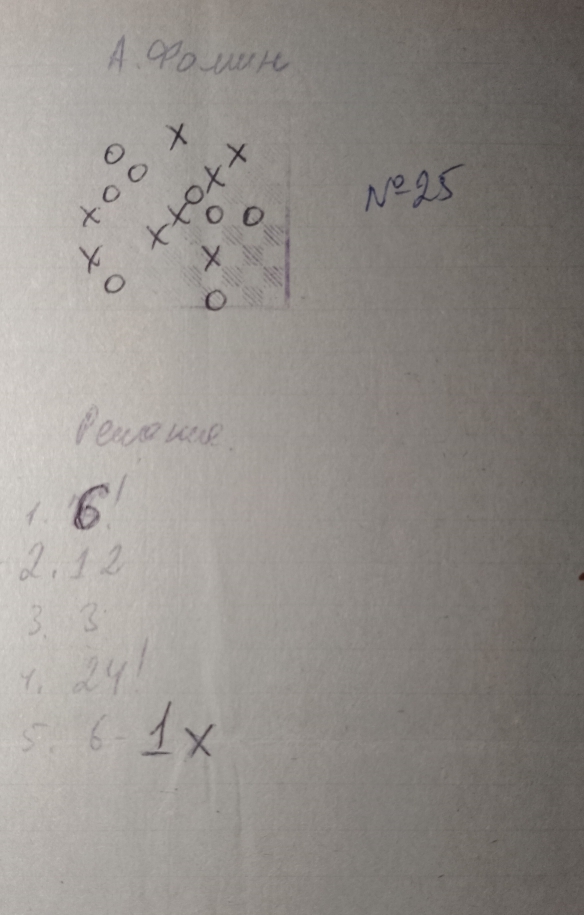 А. Фомин
№ 25
Решение
1. 6!
2. 12
3. 3
4. 24!
5. 6 - 1 X